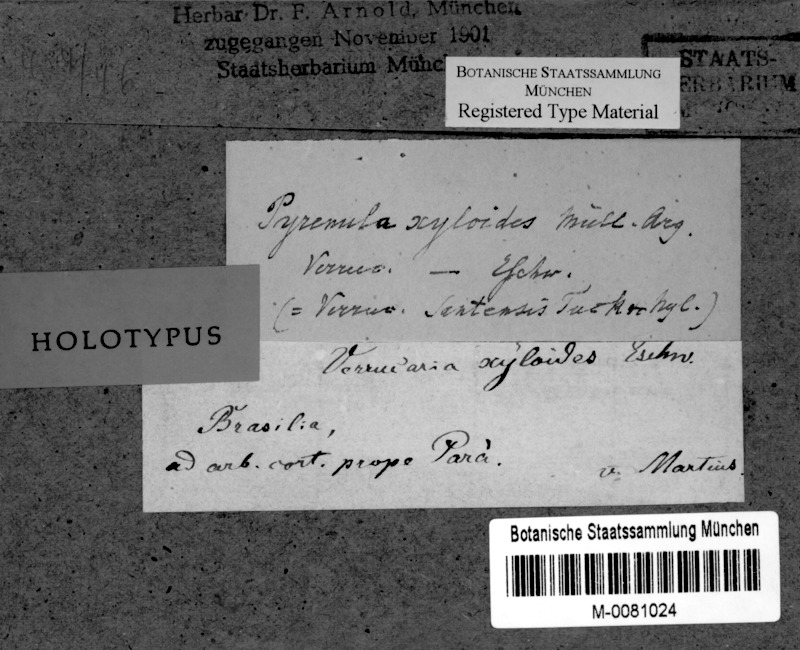 Herbar Dr. F. Arnold, München
zugegangen November 1901
Staatsherbarium Münc
STAATS-
ERBARIUM
BOTANISCHE STAATSSAMMLUNG
MÜNCHEN
Registered Type Material
Pyrenula xyloides Müll. Arg.
Verruc. — Eschw.
(= Verruc. Santensis Tuck. Nyl.)
HOLOTYPUS
Verrucaria xyloides Eschw.
Brasilia,
ad arb. cort. prope Parà.
v. Martius.
Botanische Staatssammlung München
M-0081024